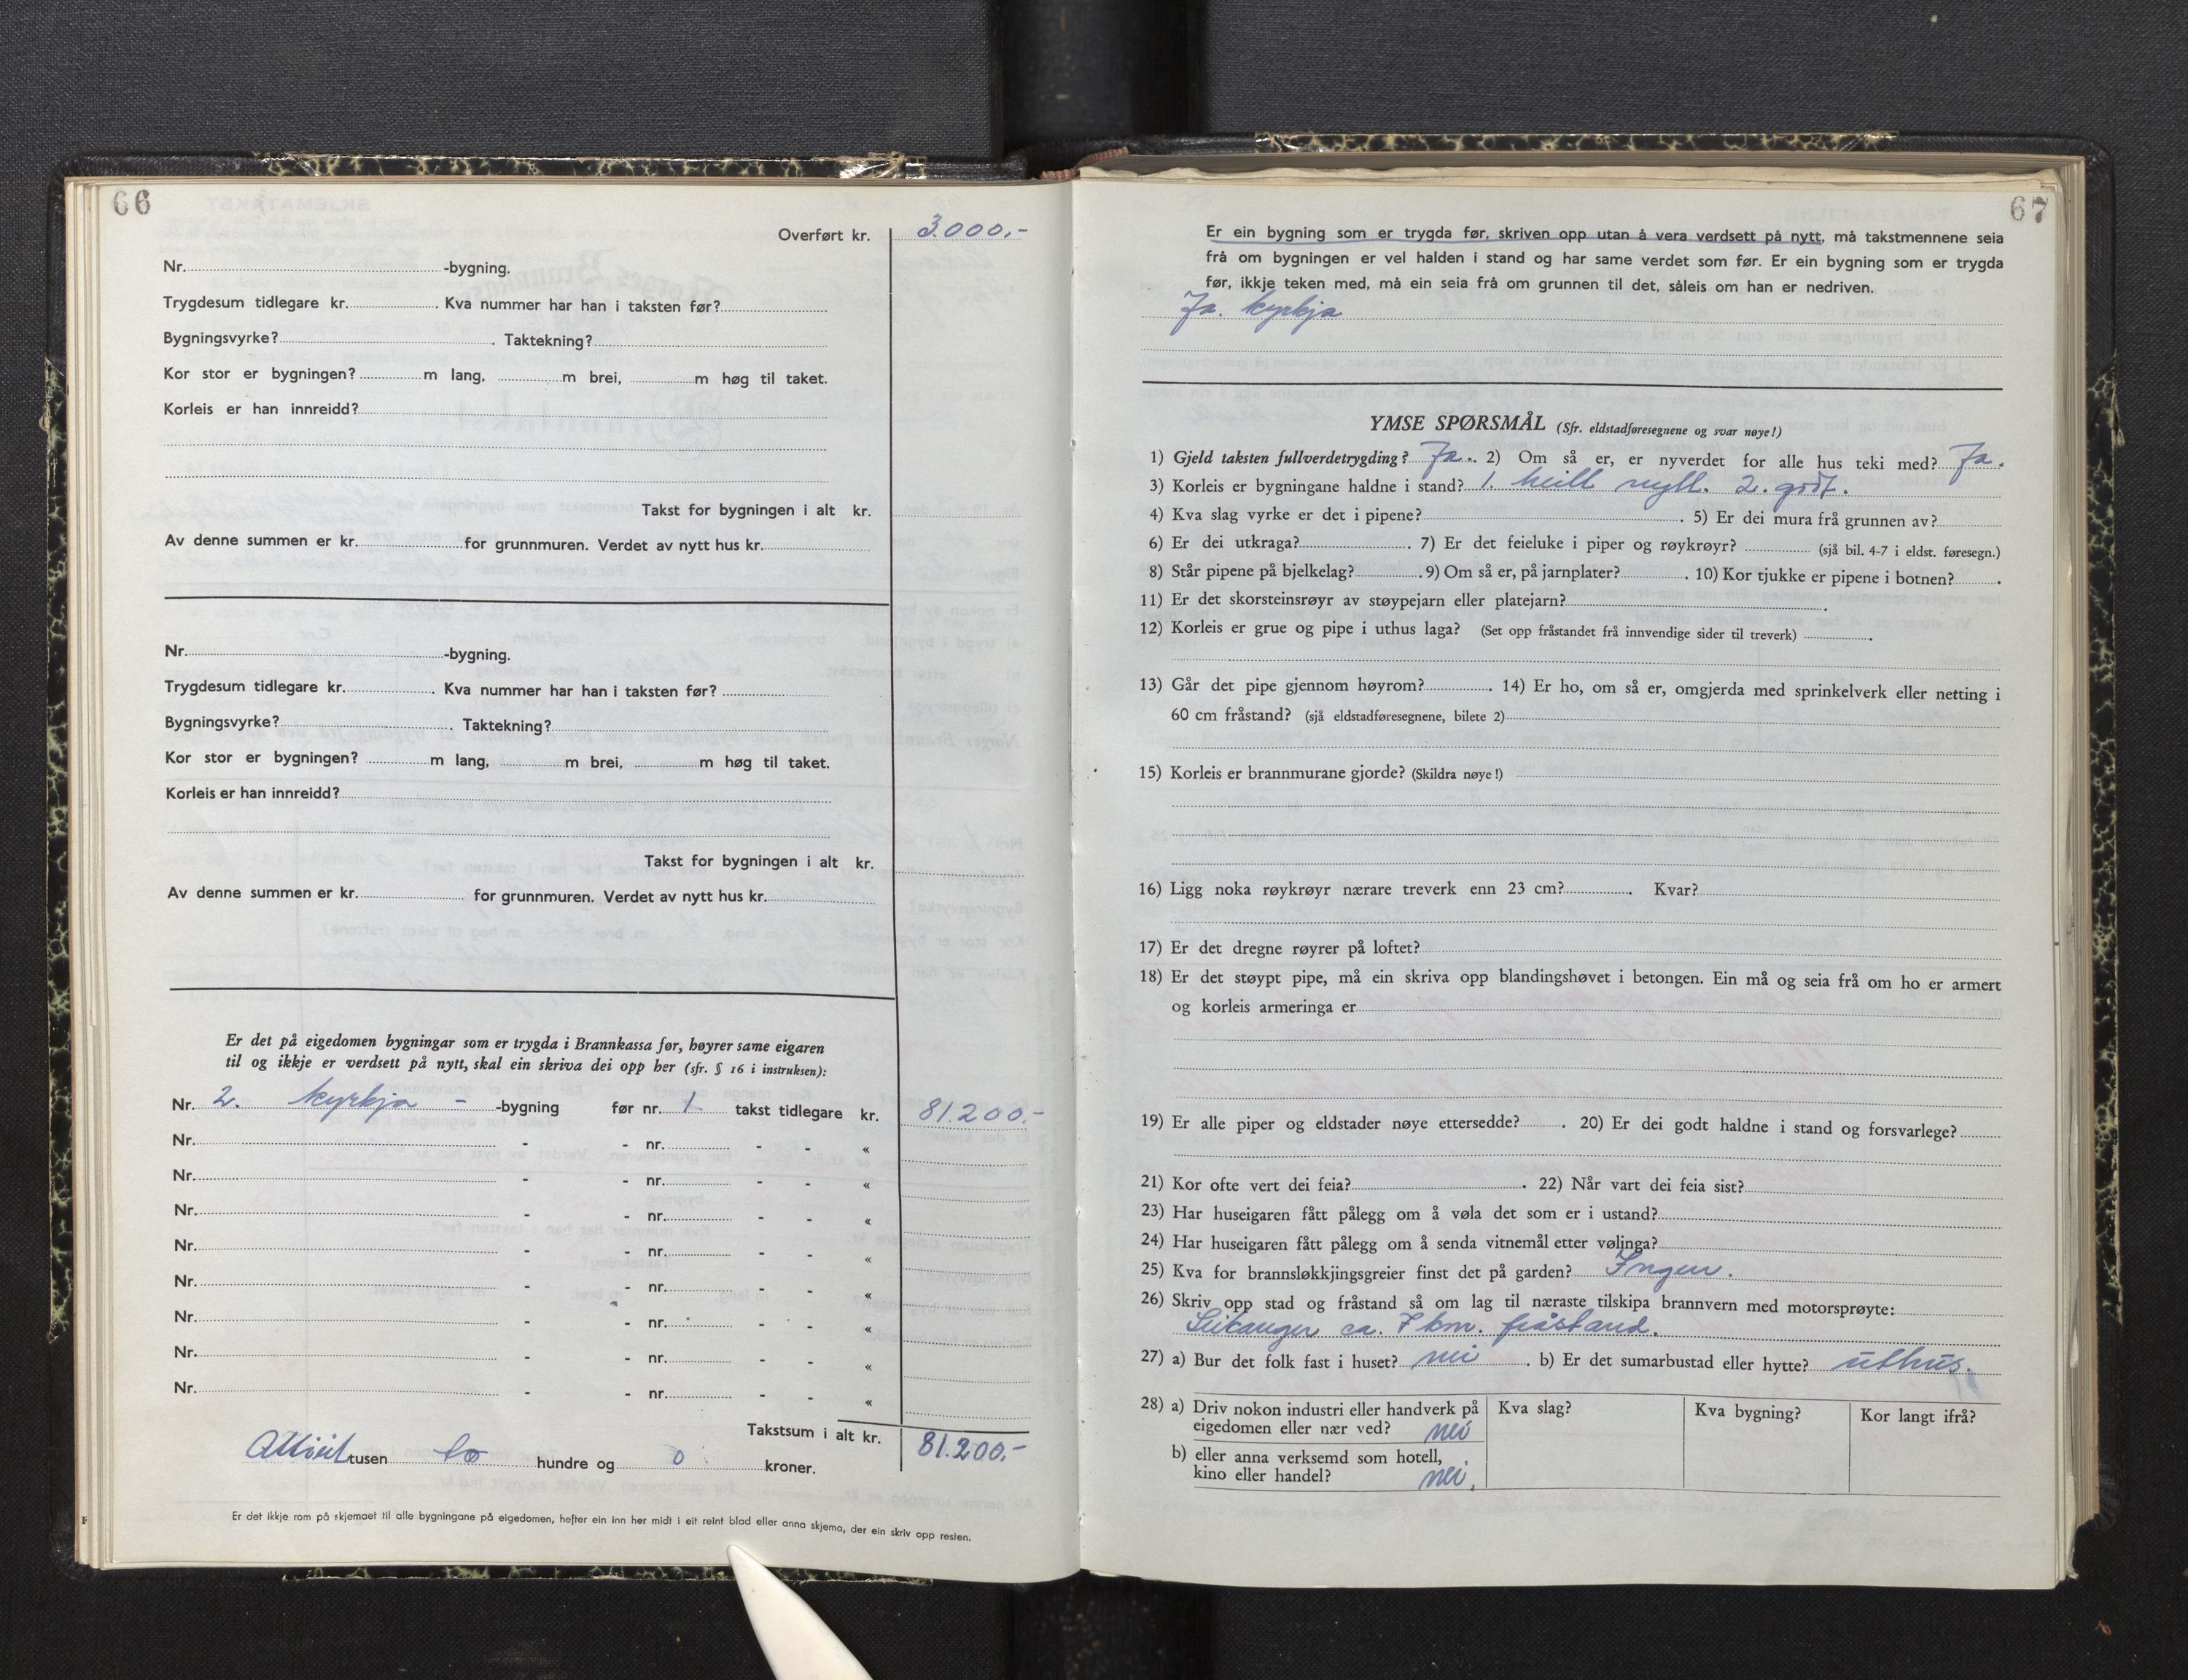 66
Overført kr. 3.000.-
Nr. -bygning.
Trygdesum tidlegare kr. . Kva nummer har han i taksten før?
Bygningsvyrke? . Taktekning?
Kor stor er bygningen? m lang, m brei, m høg til taket.
Korleis er han innreidd?
Takst for bygningen i alt kr.
Av denne summen er kr. for grunnmuren. Verdet av nytt hus kr.
Nr. -bygning.
Trygdesum tidlegare kr. . Kva nummer har han i taksten før?
Bygningsvyrke? . Taktekning?
Kor stor er bygningen? m lang, m brei, m høg til taket.
Korleis er han innreidd?
Takst for bygningen i alt kr.
Av denne summen er kr. for grunnmuren. Verdet av nytt hus kr.
Er det på eigedomen bygningar som er trygda i Brannkassa før, høyrer same eigaren
til og ikkje er verdsett på nytt, skal ein skriva dei opp her (sfr. § 16 i instruksen):
Nr. 2. kyrkja - -bygning før nr. 1 takst tidlegare kr. 81.200.-
Nr. - - nr. - - «
Nr. - - nr. - - «
Nr. - - nr. - - «
Nr. - - nr. - - «
Nr. - - nr. - - «
Nr. - - nr. - - «
Nr. - - nr. - - «
Nr. - - nr. - - «
Takstsum i alt kr. 81.200.-
tusen to hundre og 0 kroner.
Er det ikkje rom på skjemaet til alle bygningane på eigedomen, hefter ein inn her midt i eit reint blad eller anna skjema, der ein skriv opp resten.
67
Er ein bygning som er trygda før, skriven opp utan å vera verdsett på nytt, må takstmennene seia
frå om bygningen er vel halden i stand og har same verdet som før. Er ein bygning som er trygda
før, ikkje teken med, må ein seia frå om grunnen til det, såleis om han er nedriven.
Ja. kyrkja
YMSE SPØRSMÅL (Sfr. eldstadføresegnene og svar nøye!)
1) Gjeld taksten fullverdetrygding? Ja. 2) Om så er, er nyverdet for alle hus teki med? Ja.
3) Korleis er bygningane haldne i stand? 1. heilt nytt. 2. godt.
4) Kva slag vyrke er det i pipene? . 5) Er dei mura frå grunnen av?
6) Er dei utkraga? . 7) Er det feieluke i piper og røykrøyr? (sjå bil. 4-7 i eldst. føresegn.)
8) Står pipene på bjelkelag? . 9) Om så er, på jarnplater? . 10) Kor tjukke er pipene i botnen? .
11) Er det skorsteinsrøyr av støypejarn eller platejarn? .
12) Korleis er grue og pipe i uthus laga? (Set opp fråstandet frå innvendige sider til treverk) .
13) Går det pipe gjennom høyrom? . 14) Er ho, om så er, omgjerda med sprinkelverk eller netting i
60 cm fråstand? (sjå eldstadføresegnene, bilete 2)
15) Korleis er brannmurane gjorde? (Skildra nøye!)
16) Ligg noka røykrøyr nærare treverk enn 23 cm? . Kvar?
17) Er det dregne røyrer på loftet?
18) Er det støypt pipe, må ein skriva opp blandingshøvet i betongen. Ein må og seia frå om ho er armert
og korleis armeringa er
19) Er alle piper og eldstader nøye ettersedde? . 20) Er dei godt haldne i stand og forsvarlege?
21) Kor ofte vert dei feia? . 22) Når vart dei feia sist?
23) Har huseigaren fått pålegg om å vøla det som er i ustand?
24) Har huseigaren fått pålegg om å senda vitnemål etter vølinga?
25) Kva for brannsløkkjingsgreier finst det på garden? Ingen.
26) Skriv opp stad og fråstand så om lag til næraste tilskipa brannvern med motorsprøyte:
Leikanger ca. 7 km. fråstand.
27) a) Bur det folk fast i huset? nei . b) Er det sumarbustad eller hytte? uthus.
28) a) Driv nokon industri eller handverk på eigedomen eller nær ved? nei
Kva slag? Kva bygning? Kor langt ifrå?
b) eller anna verksemd som hotell,
kino eller handel? nei.